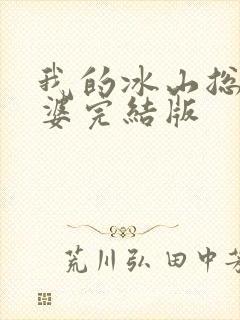 我的冰山总
婆完结版
荒川弘 田中芳